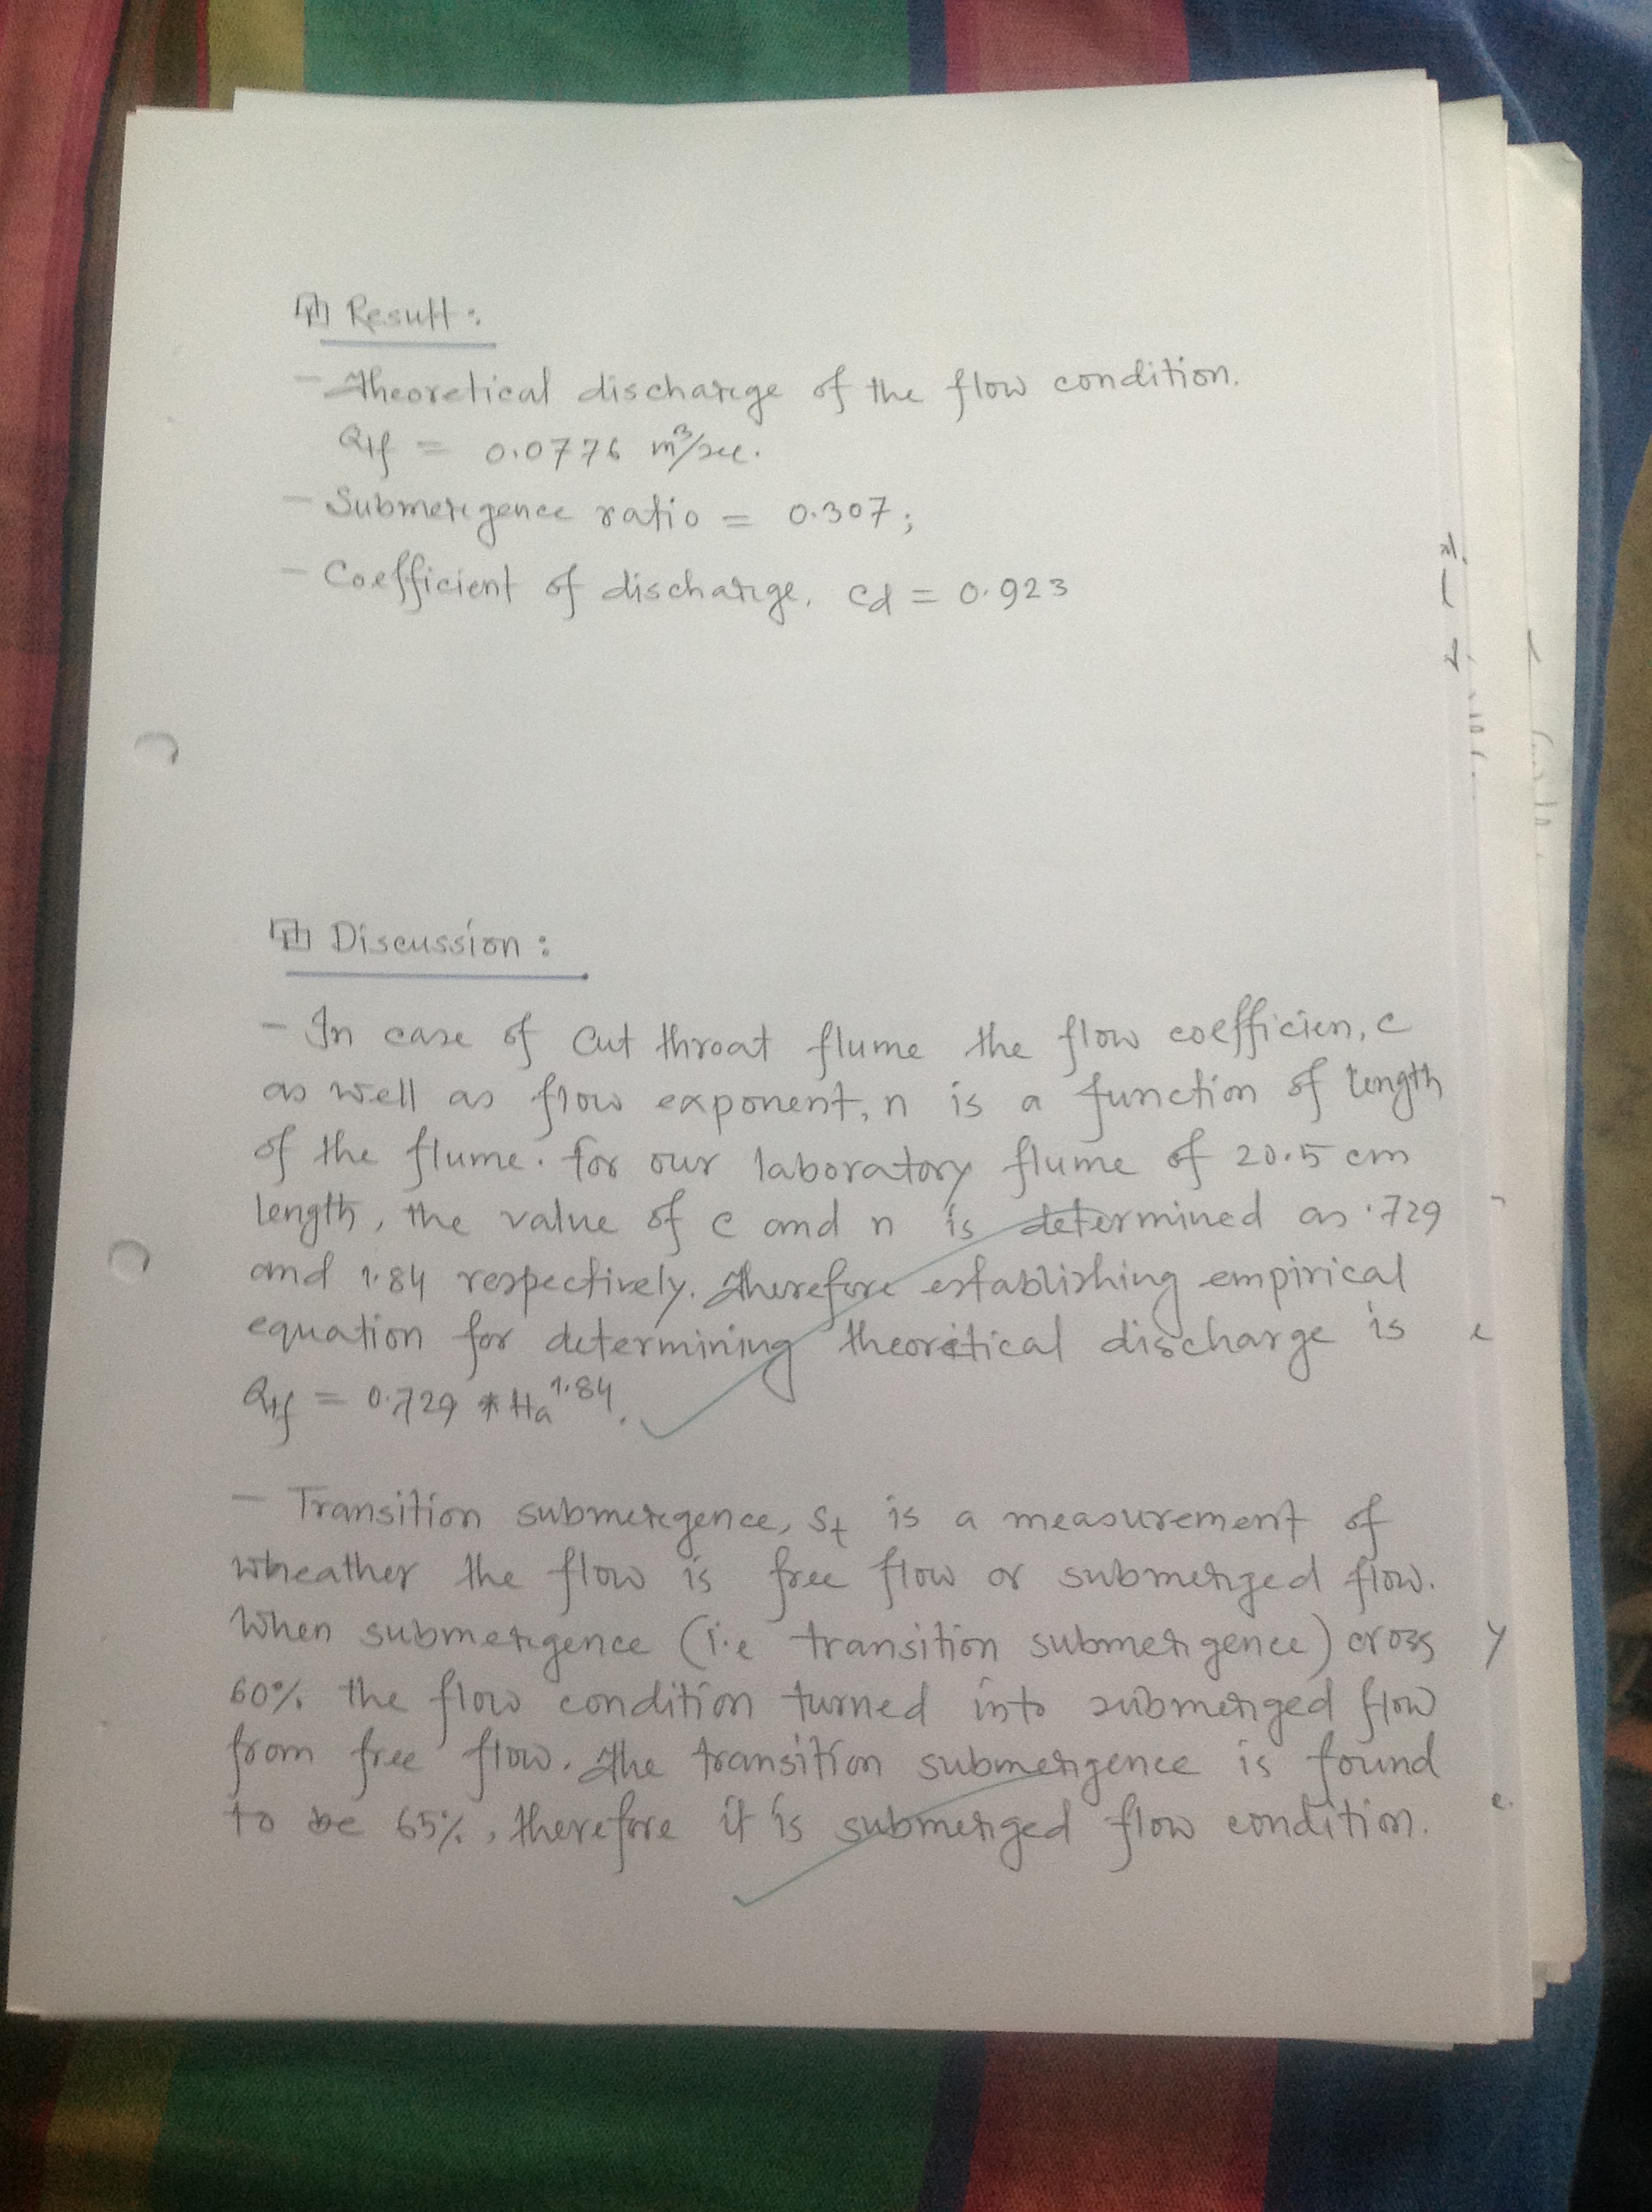 Result:
- Theoretical discharge of the flow condition.
Qtf = 0.0776 m³/sec.
- Submergence ratio = 0.307;
- Coefficient of discharge, cd = 0.923
Discussion:
- In case of cut throat flume the flow coefficien, c
as well as flow exponent, n is a function of length
of the flume. for our laboratory flume of 20.5 cm
length, the value of c and n is determined as .729
and 1.84 respectively. Therefore establishing empirical
equation for determining theoretical discharge is
Qtf = 0.729 * Ha^1.84.
- Transition submergence, St is a measurement of
wheather the flow is free flow or submerged flow.
When submergence (i.e transition submergence) cross
60% the flow condition turned into submerged flow
from free flow. The transition submergence is found
to be 65%, therefore it is submerged flow condition.